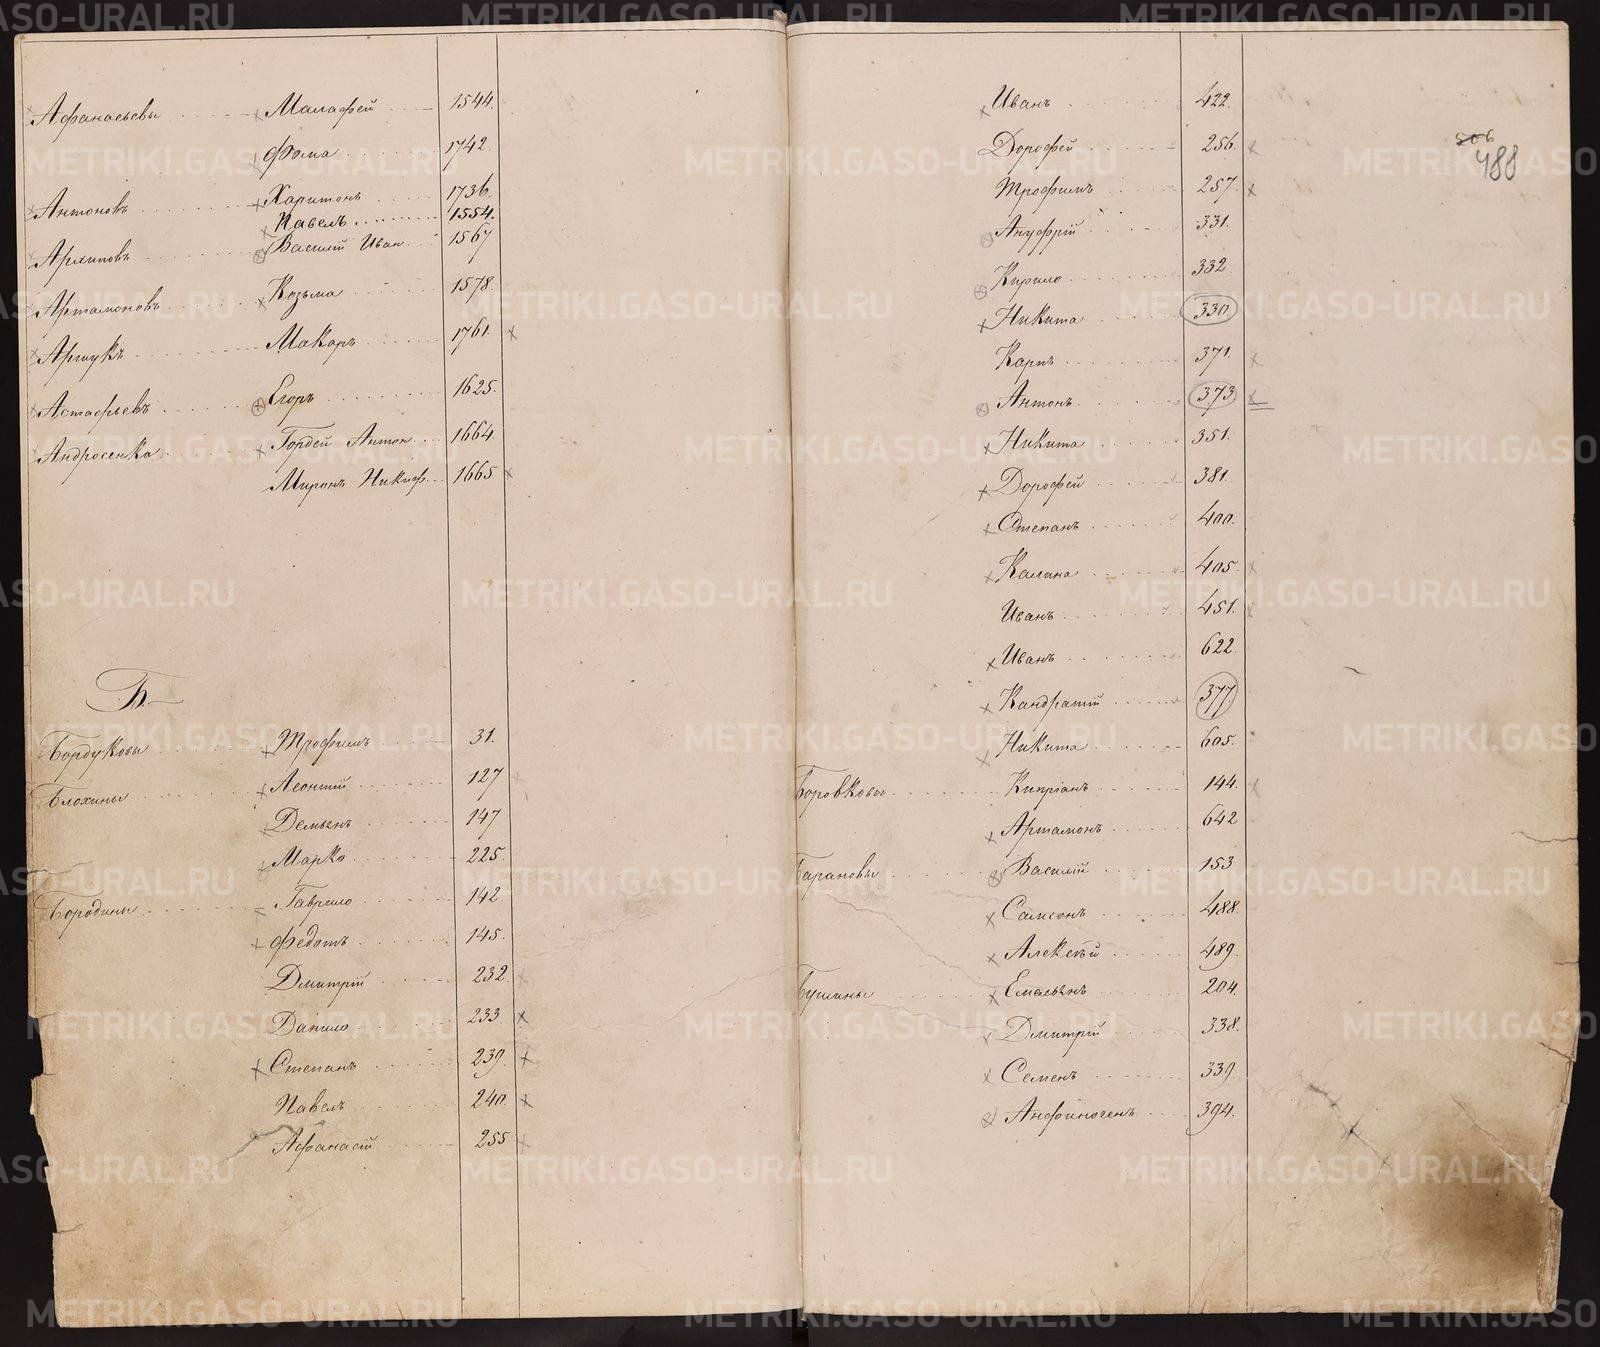 Афанасьевы Малафей 1544.
Фома 1742.
Антоновъ Харитонъ 1736.
Павелъ 1554.
Архиповъ Василій Иван 1567
Артамоновъ Козьма 1578.
Макаръ 1761.
Астафьевъ Егоръ 1625.
Андросенка Гордей Антон 1664.
Миронъ Никиф. 1665
Б.
Бордуковы Трофимъ 31.
Блохины Леонтій 127
Демьянъ 147
Марко 225.
Бородины Гаврило 142
Федотъ 145.
Дмитрій 232.
Данило 233
Степанъ 239.
Павелъ 240.
Афанасій 255
506
488
Иванъ 422.
Дорофей 256.
Трофимъ 257.
Ануфрій 331.
Кирило 332
Никита 330.
Карпъ 371.
Антонъ 373
Никита 351.
Дорофей 381.
Степанъ 400.
Калина 405.
Иванъ 451.
Иванъ 622.
Кандратій 377.
Никита 605.
Боровковы Кипріанъ 144.
Артамонъ 642
Барановы Василій 153
Самсонъ 488.
Алексѣй 489.
Бушины Емельянъ 204.
Дмитрій 338.
Семенъ 339.
Анфиногенъ 394.
METRIKI.GASO-URAL.RU